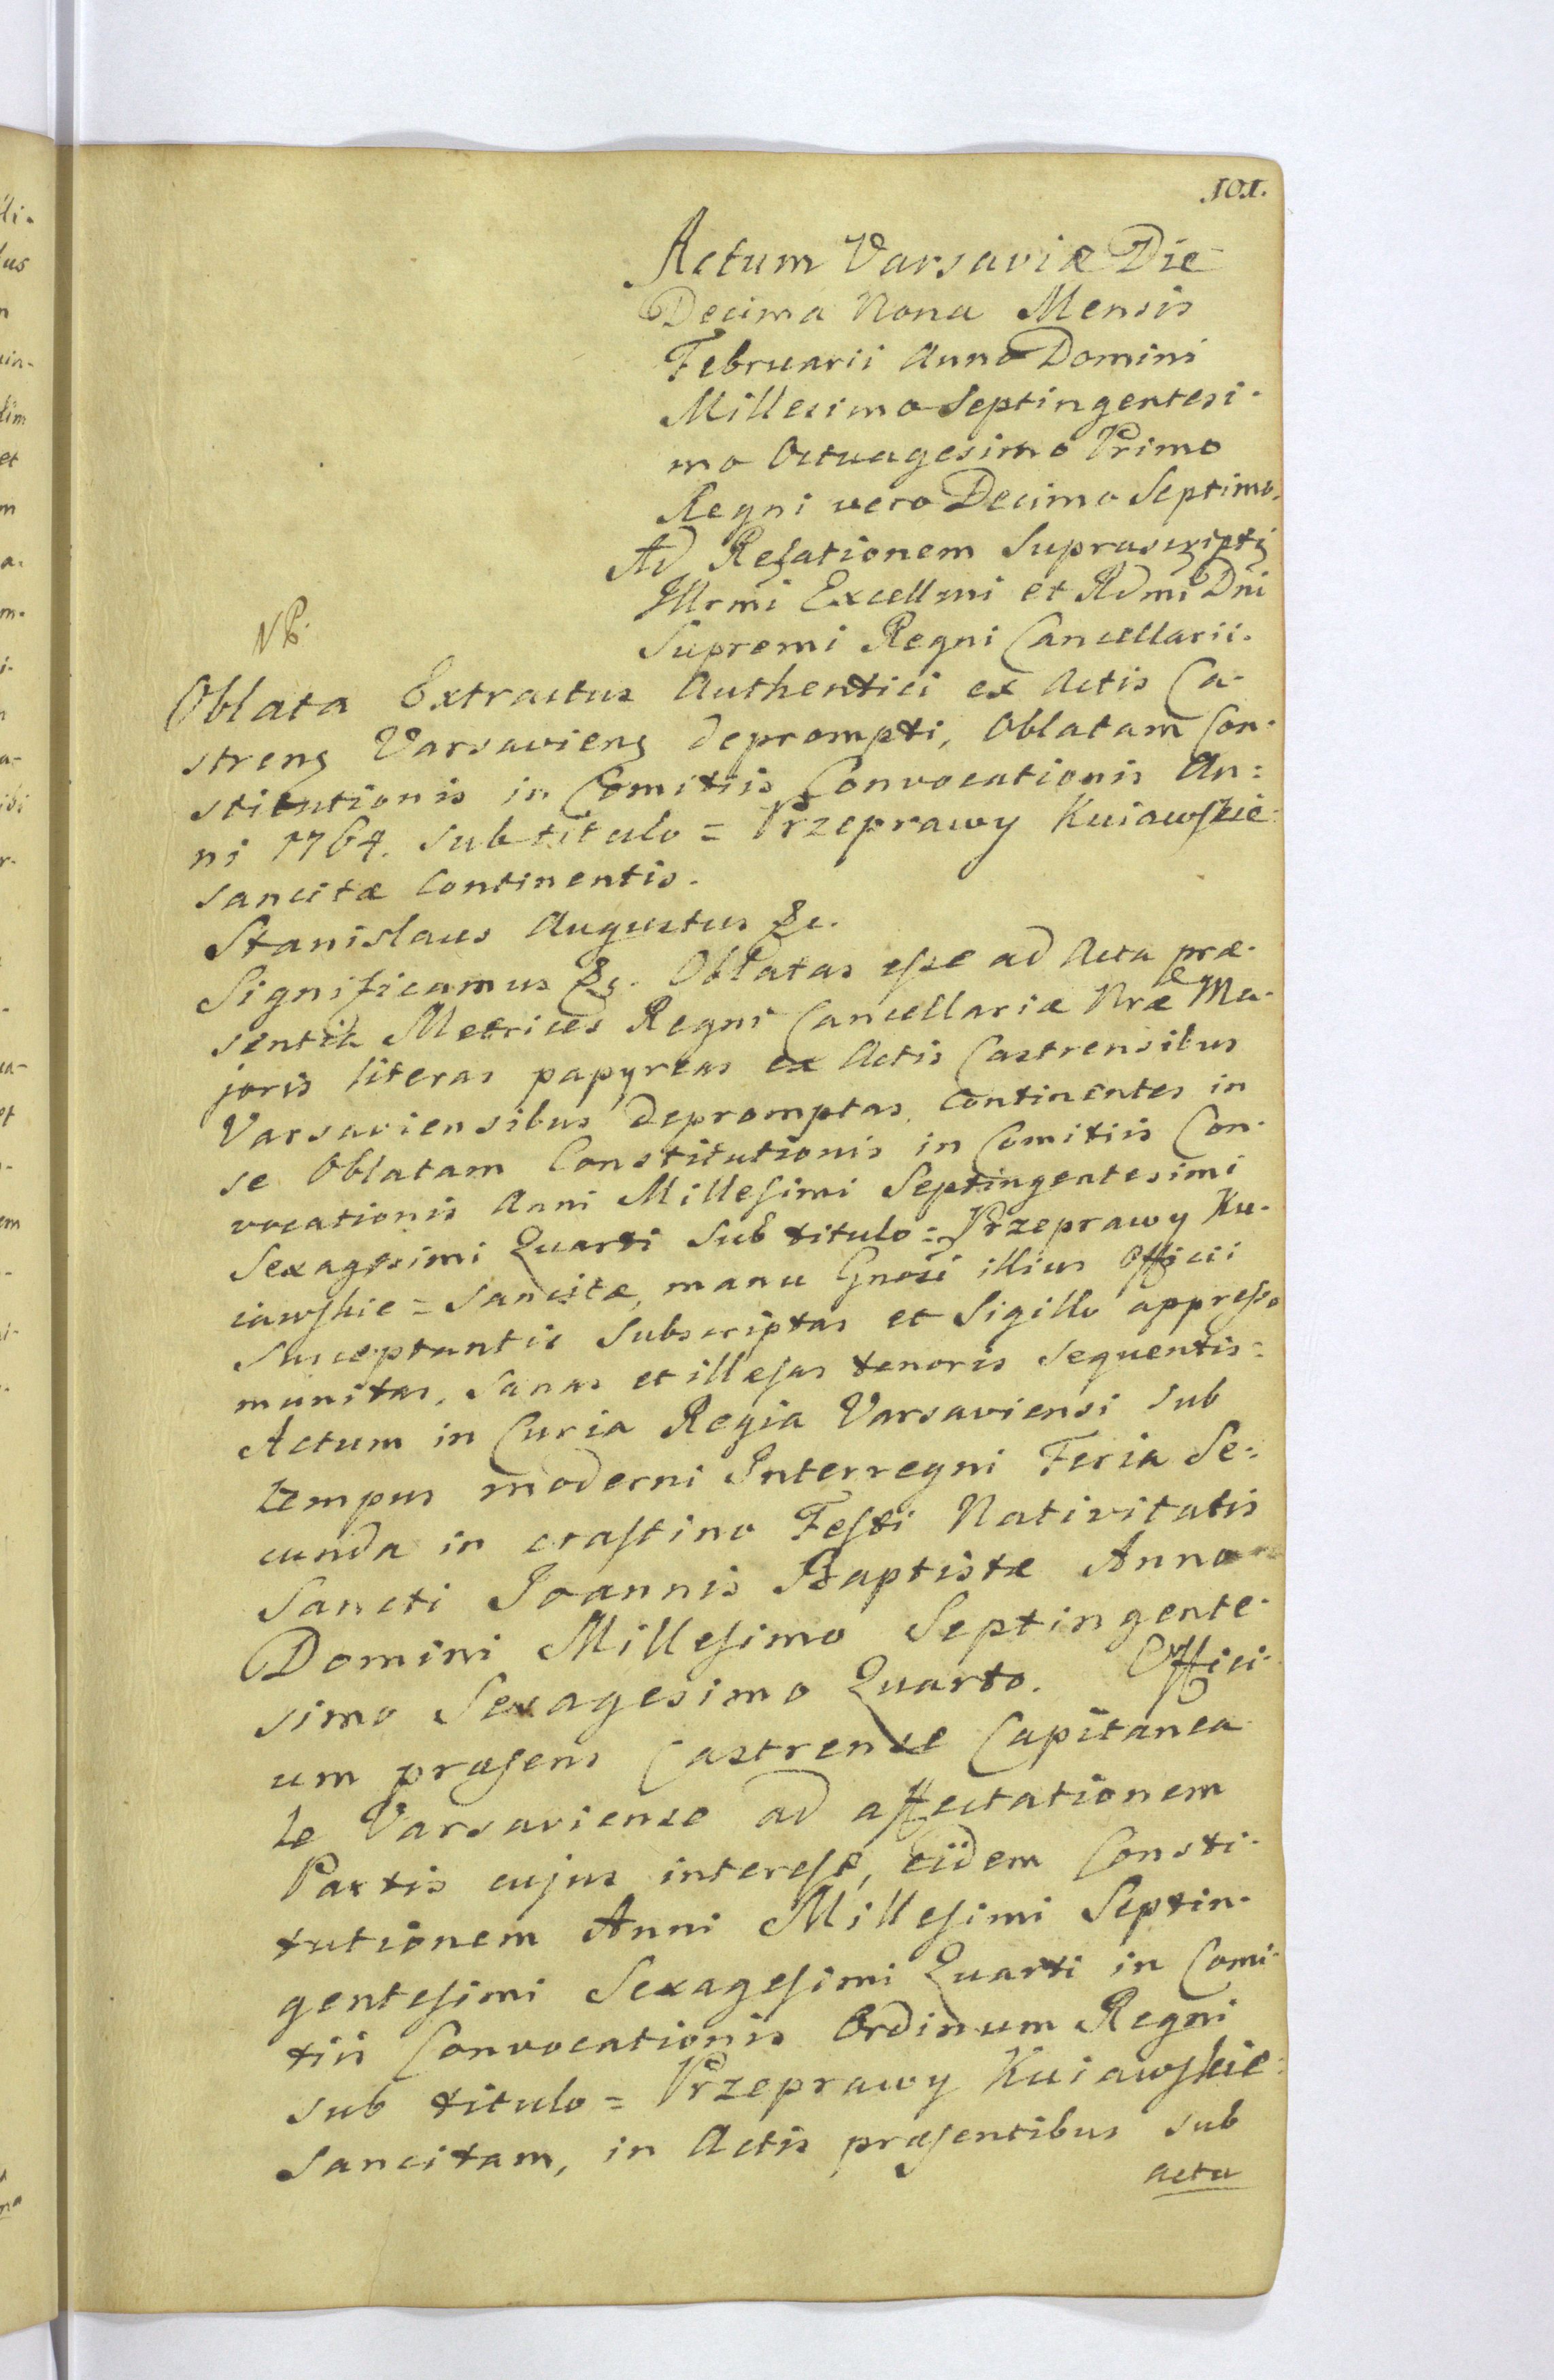 101.
Actum Varsaviæ Die
Decima Nona Mensis
Februarii Anno Domini
Millesimo Septingentesi-
mo Octuagesimo Primo
Regni vero Decimo Septimo.
Ad Relationem Suprascripti
Illrmi Excellmi et Rdmi Dni
Supremi Regni Cancellarii.
NB.
Oblata Extractus Authentici ex Actis Ca-
strens Varsaviens deprompti, Oblatam Con-
stitutionis in Comitiis Convocationis An=
ni 1764. sub titulo = Przeprawy Kuiawskie=
sancitæ continentis.
Stanislaus Augustus &c.
Significamus &c. Oblatas esse ad Acta præ-
sentia Metrices Regni Cancellariæ Nræ Ma-
joris literas papyreas ex Actis Castrensibus
Varsaviensibus depromptas continentes in
se Oblatam Constitutionis in Comitiis Con-
vocationis Anni Millesimi Septingentesimi
Sexagesimi Quarti sub titulo = Przeprawy Ku-
iawskie = sancitæ, manu Gnosi illius Officii
susceptantis subscriptas et Sigillo appresso
munitas, sanas et illesas tenoris sequentis=
Actum in Curia Regia Varsaviensi sub
tempus moderni Interregni Feria Se=
cunda in crastino Festi Nativitatis
Sancti Joannis Baptistæ Anno
Domini Millesimo Septingente-
simo Sexagesimo Quarto. Offici-
um præsens Castrense Capitanea-
le Varsaviense ad affectationem
Partis cujus interest, eidem Consti-
tutionem Anni Millesimi Septin-
gentesimi Sexagesimi Quarti in Comi-
tiis Convocationis Ordinum Regni
sub titulo = Przeprawy Kuiawskie=
Sancitam, in Actis præsentibus sub
actu